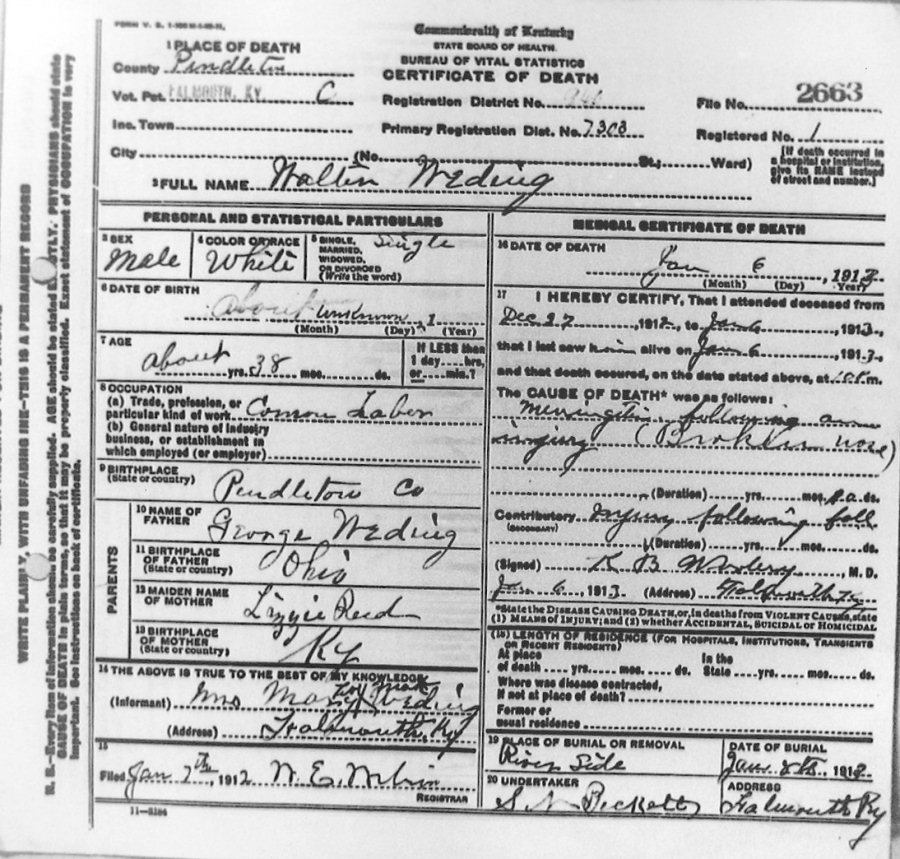 FORM V. S.
Commonwealth of Kentucky
STATE BOARD OF HEALTH.
BUREAU OF VITAL STATISTICS
CERTIFICATE OF DEATH
1 PLACE OF DEATH
County Pendleton
Vot. Pct. FALMOUTH, KY. C
Registration District No.
File No. 2663
Inc. Town
Primary Registration Dist. No. 7303
Registered No. 1
City (No. St.; Ward)
[If death occurred in a hospital or institution, give its NAME instead of street and number.]
2 FULL NAME Waltin Weding
PERSONAL AND STATISTICAL PARTICULARS
3 SEX Male
4 COLOR OR RACE White
5 SINGLE, MARRIED, WIDOWED, OR DIVORCED (Write the word) Single
6 DATE OF BIRTH about unknown 1
(Month) (Day) (Year)
7 AGE about 38 yrs. mos. ds.
If LESS than 1 day hrs, or min.?
8 OCCUPATION
(a) Trade, profession, or particular kind of work Comon Laber
(b) General nature of industry business, or establishment in which employed (or employer)
9 BIRTHPLACE (State or country) Pendleton Co
PARENTS
10 NAME OF FATHER George Weding
11 BIRTHPLACE OF FATHER (State or country) Ohio
12 MAIDEN NAME OF MOTHER Lizzie Reed
13 BIRTHPLACE OF MOTHER (State or country) Ky
14 THE ABOVE IS TRUE TO THE BEST OF MY KNOWLEDGE
(Informant) Mrs Mary Weding
(Address) Falmouth, Ky
15
Filed Jan 7th, 1912 W. E.
REGISTRAR
11-3184
MEDICAL CERTIFICATE OF DEATH
16 DATE OF DEATH
Jan 6, 1913
(Month) (Day) (Year)
17 I HEREBY CERTIFY, That I attended deceased from
Dec 27, 1912, to Jan 6, 1913,
that I last saw him alive on Jan 6, 1913,
and that death occurred, on the date stated above, at m.
The CAUSE OF DEATH* was as follows:
Meningitis following an
injury (Broken nose)
(Duration) yrs. mos. ds.
Contributory Injury following fall
(SECONDARY)
(Duration) yrs. mos. ds.
(Signed) K B, M. D.
Jan 6, 1913 (Address) Falmouth Ky
*State the DISEASE CAUSING DEATH, or, in deaths from VIOLENT CAUSES, state
(1) MEANS OF INJURY; and (2) whether ACCIDENTAL, SUICIDAL or HOMICIDAL
(18) LENGTH OF RESIDENCE (FOR HOSPITALS, INSTITUTIONS, TRANSIENTS
OR RECENT RESIDENTS)
At place of death yrs. mos. ds. In the State yrs. mos. ds.
Where was disease contracted,
if not at place of death?
Former or
usual residence
19 PLACE OF BURIAL OR REMOVAL River Side
DATE OF BURIAL Jan 8th, 1913
20 UNDERTAKER S N Becketts
ADDRESS Falmouth Ky
WRITE PLAINLY, WITH UNFADING INK—THIS IS A PERMANENT RECORD
N. B.—Every item of information should be carefully supplied. AGE should be stated EXACTLY. PHYSICIANS should state
CAUSE OF DEATH in plain terms, so that it may be properly classified. Exact statement of OCCUPATION is very
important. See instructions on back of certificate.